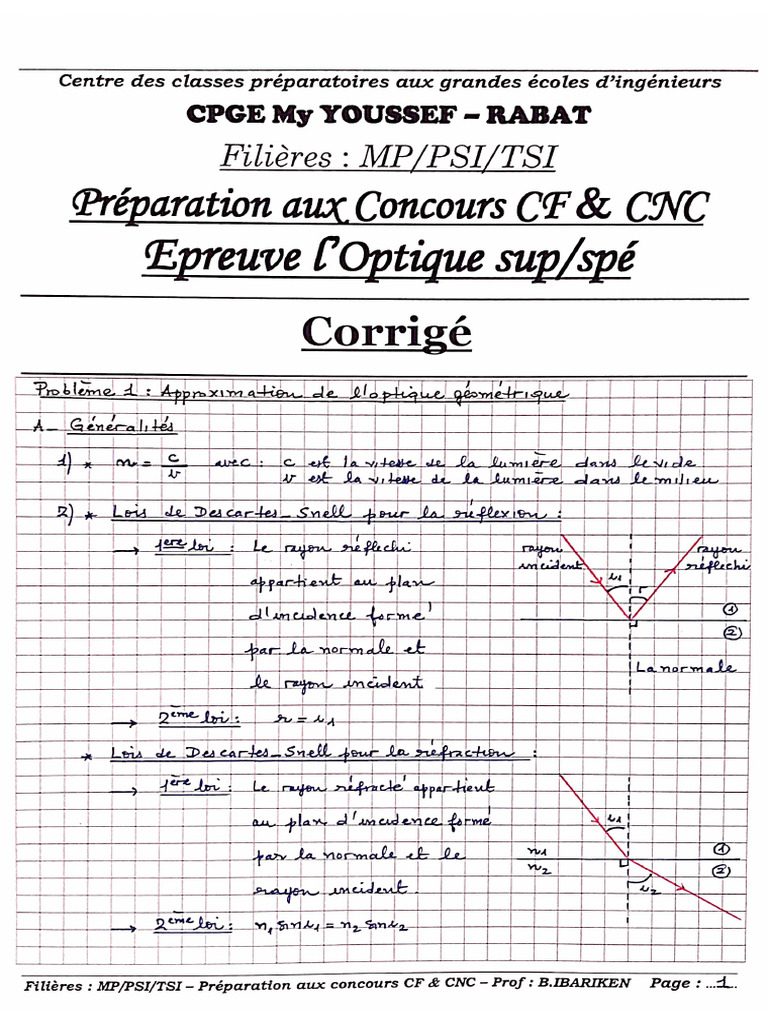 Centre des classes préparatoires aux grandes écoles d'ingénieurs
CPGE My YOUSSEF – RABAT
Filières : MP/PSI/TSI
Préparation aux Concours CF & CNC
Epreuve l'Optique sup/spé
Corrigé
Problème 1 : Approximation de l'optique géométrique
A_ Généralités
1) * n = c/v avec : c est la vitesse de la lumière dans le vide
v est la vitesse de la lumière dans le milieu
2) * Lois de Descartes_Snell pour la réflexion :
→ 1ère loi : Le rayon réflechi
appartient au plan
d'incidence formé
par la normale et
le rayon incident
rayon incident
i1
r
rayon réflechi
①
②
La normale
→ 2ème loi : r = i1
* Lois de Descartes_Snell pour la réfraction :
→ 1ère loi : Le rayon réfracté appartient
au plan d'incidence formé
par la normale et le
rayon incident.
i1
n1
①
n2
②
i2
→ 2ème loi : n1 sin i1 = n2 sin i2
Filières : MP/PSI/TSI – Préparation aux concours CF & CNC – Prof : B.IBARIKEN Page : ...1..